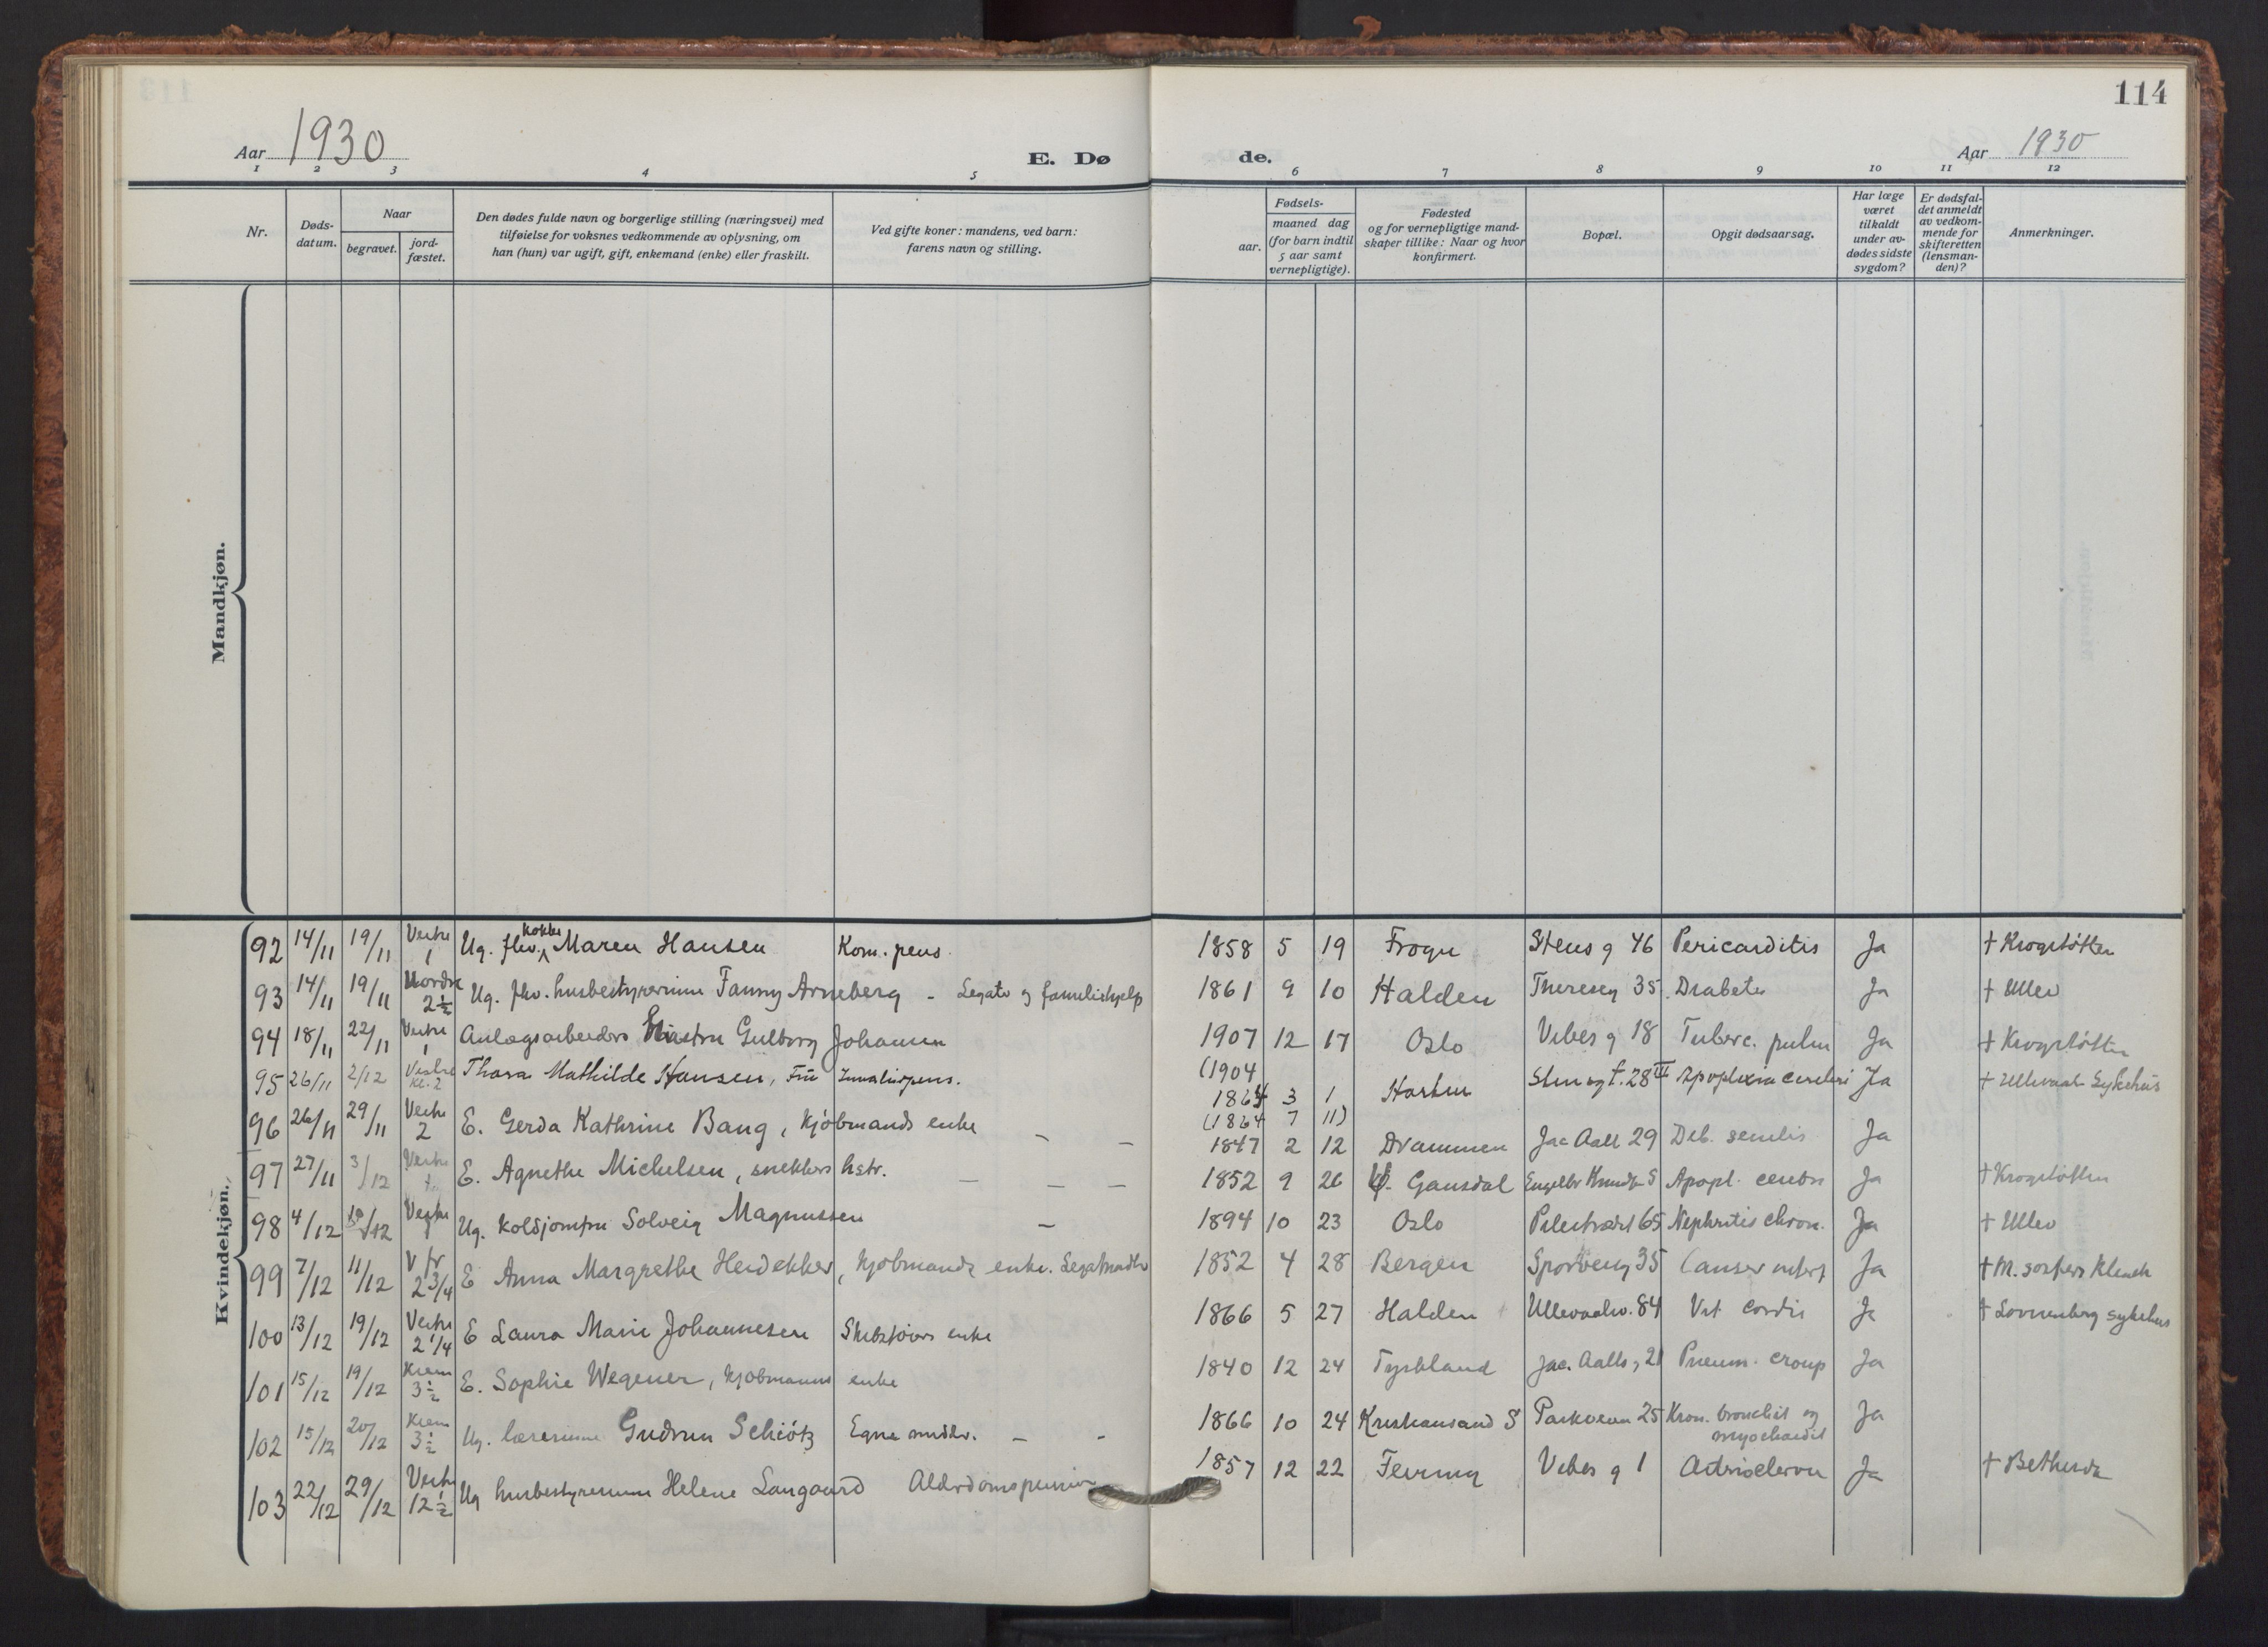 114
Aar 1930
E. Dø
de.
Aar 1930
1 2 3 4 5 6 7 8 9 10 11 12
Nr.
Døds-
datum.
Naar
begravet.
jord-
fæstet.
Den dødes fulde navn og borgerlige stilling (næringsvei) med
tilføielse for voksnes vedkommende av oplysning, om
han (hun) var ugift, gift, enkemand (enke) eller fraskilt.
Ved gifte koner: mandens, ved barn:
farens navn og stilling.
Fødsels-
aar.
maaned dag
(for barn indtil
5 aar samt
vernepligtige).
Fødested
og for vernepligtige mand-
skaper tillike: Naar og hvor
konfirmert.
Bopæl.
Opgit dødsaarsag.
Har læge
været
tilkaldt
under av-
dødes sidste
sygdom?
Er dødsfal-
det anmeldt
av vedkom-
mende for
skifteretten
(lensman-
den)?
Anmerkninger.
Mandkjøn.
Kvindekjøn.
92 14/11 19/11 Vestre 1 Ug. fhv. kokke Maren Hansen Kom. pens 1858 5 19 Frogn Stens g 46 Pericarditis Ja † Krogstøtten
93 14/11 19/11 Nordre 2½ Ug. fhv. husbestyrerinne Fanny Arneberg - Legate og familiehjelp 1861 9 10 Halden Thereseg 35 Diabetes Ja † Ullev
94 18/11 22/11 Vestre 1 Anlægsarbeiders hustru Gulborg Johansen 1907 12 17 Oslo Vibes g 18 Tuberc. pulm Ja † Krogstøtten
95 26/11 2/12 Vestre kl. 2 Thora Mathilde Hansen, Frü Invalidpens. (1904 1864 3 1 28 III Apoplexia cerebri Ja † Ullevaal Sykehüs
96 26/11 29/11 Vestre 2 E. Gerda Kathrine Bang, kjøbmands enke - - (1864 7 11) 1847 2 12 Drammen Jac Aall 29 Deb. senilis Ja
97 27/11 3/12 Vestre E. Agnethe Michelsen, snekkers hstr. - - - 1852 9 26 Gausdal 5 Apopl. cerebri Ja † Krogstøtten
98 4/12 /12 Vestre 1 Ug. koldjomfru Solveig Magnussen - 1894 10 23 Oslo Pilestrædet 65 Nephritis chron. Ja † Ullev
99 7/12 11/12 V fr 2 3/4 E Anna Margrethe Heidekker, kjøbmands enke. 1852 4 28 Bergen Sporveisg 35 Ja †
100 13/12 19/12 Vestre 2 1/4 E Laura Marie Johannesen Skibsførers enke 1866 5 27 Halden Ullevaalsv. 84 Vit cordis Ja † Lovisenberg sykehus
101 15/12 19/12 Krem 3½ E. Sophie Wegener, kjøbmanns enke 1840 12 24 Tyskland Jac. Aalls, 21 Pneum. croup Ja
102 15/12 20/12 Krem 3½ Ug. lærerinne Gudrun Schiøtz Egne midler. - - 1866 10 24 Kristiansand S Parkveien 25 Kron. bronchit og
myocardit Ja
103 22/12 29/12 Vestre 12½ Ug husbestyrerinne Helene Langaard Alderdomspension 1857 12 22 Vibes g 1 Ja † Bethesda